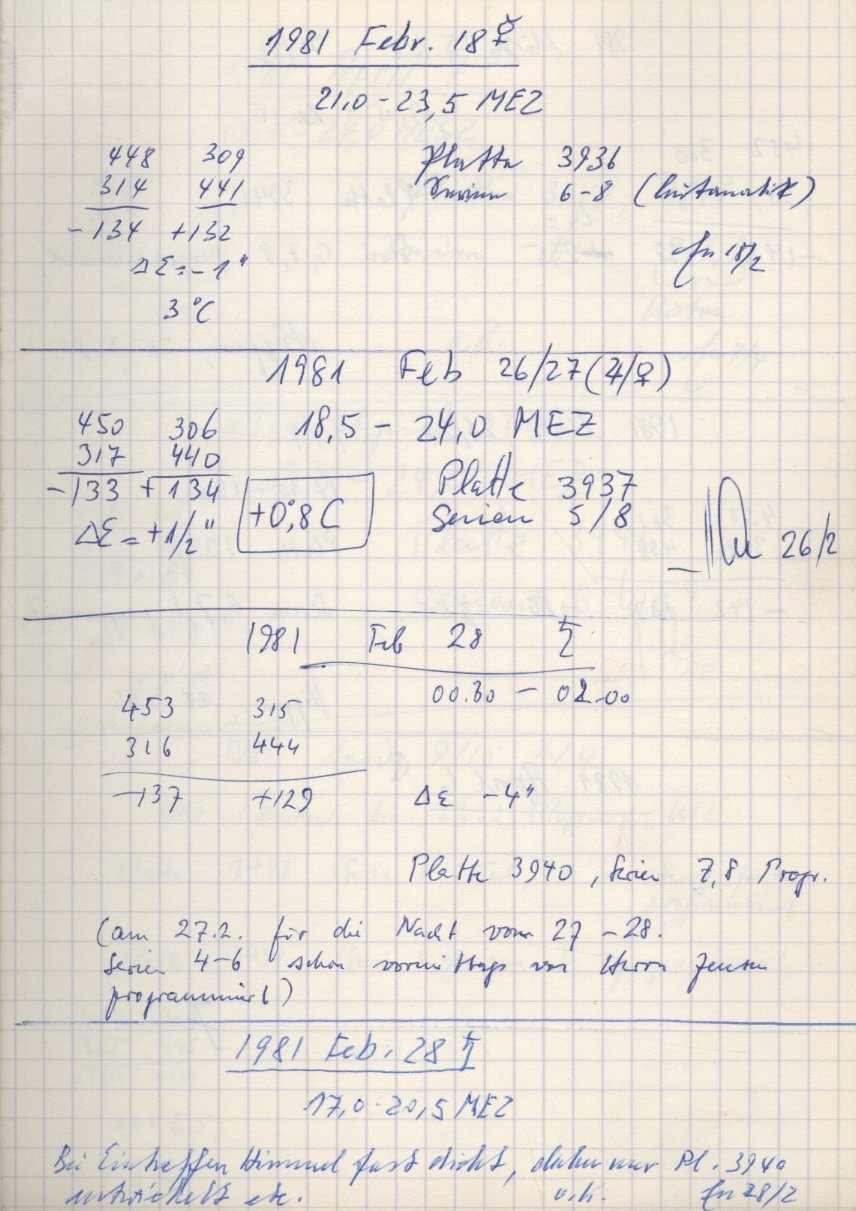 1981 Febr. 18 ☿
21,0 - 23,5 MEZ
448 309
314 441
-134 +132
ΔΣ = -1"
3°C
Platte 3936
Serien 6-8
18/2
1981 Feb 26/27 (♃/♀)
450 306
317 440
-133 +134
ΔΣ = +1/2"
+0°,8 C
18,5 - 24,0 MEZ
Platte 3937
Serien 5/8
26/2
1981 Feb 28 ♄
00.30 - 02.00
453 315
316 444
-137 +129
Δε -4"
Platte 3940, Serien 7,8 Progr.
(am 27.2. für die Nacht vom 27 - 28.
Serien 4-6 schon vormittags von Herrn Jensen
programmiert)
1981 Feb. 28 ♄
17,0 - 20,5 MEZ
Bei Eintreffen Himmel fast dicht, daher nur Pl. 3940
entwickelt etc. o.k. 28/2